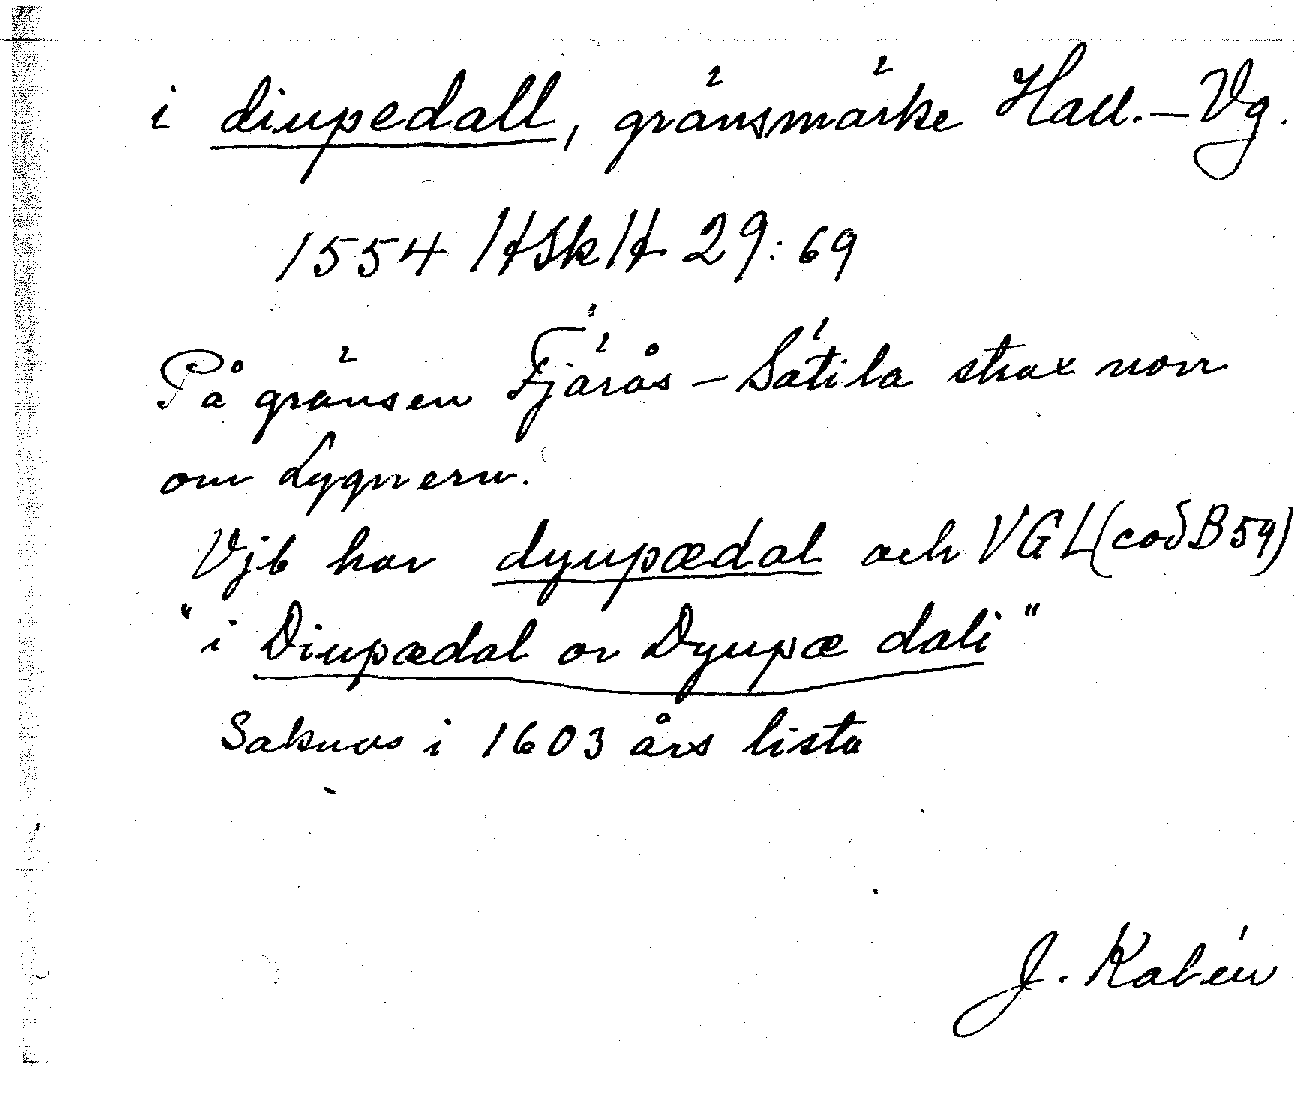 i diupedall, gränsmärke Hall.–Vg.
1554 HSkH 29:69
På gränsen Fjärås – Sätila strax norr
om Lygnern.
Vjb har dyupædal och VGL (cod B 59)
"i Diupædal or Dyupæ dali"
Saknas i 1603 års lista
J. Kalén